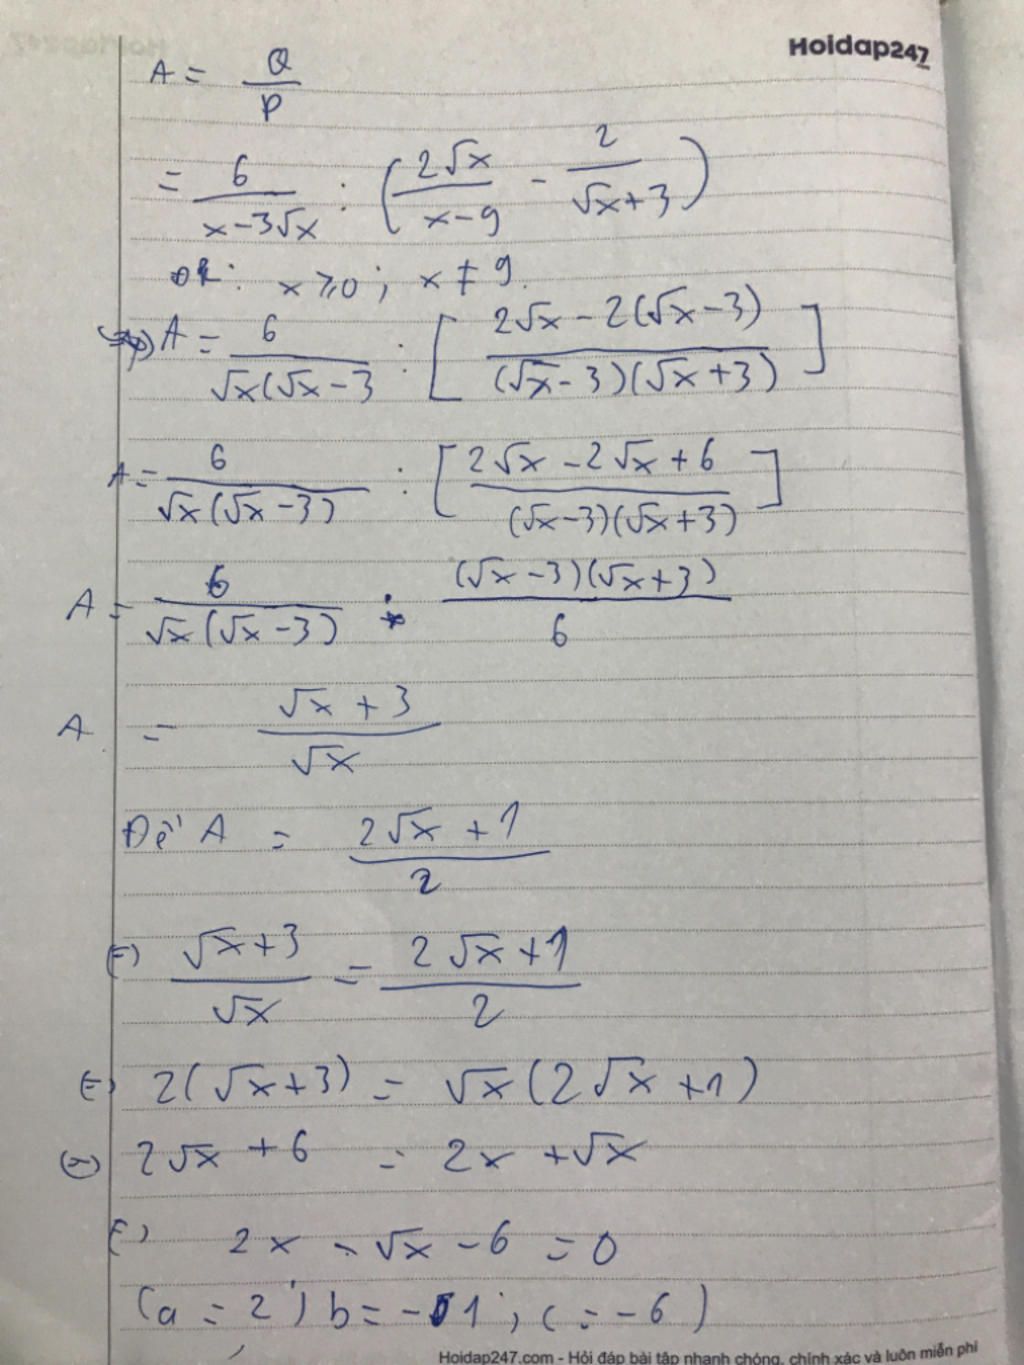 Hoidap247
A = Q/P
= 6/(x-3√x) : (2√x/(x-9) - 2/(√x+3))
ĐK: x ⩾ 0 ; x ≠ 9.
A = 6/(√x(√x-3) : [(2√x-2(√x-3))/((√x-3)(√x+3))]
A = 6/(√x(√x-3)) : [(2√x-2√x+6)/((√x-3)(√x+3))]
A = 6/(√x(√x-3)) . ((√x-3)(√x+3))/6
A = (√x+3)/√x
Để A = (2√x+1)/2
(=) (√x+3)/√x = (2√x+1)/2
(=) 2(√x+3) = √x(2√x+1)
(=) 2√x+6 = 2x+√x
(=) 2x - √x - 6 = 0
(a = 2; b = -1; c = -6)
Hoidap247.com - Hỏi đáp bài tập nhanh chóng, chính xác và luôn miễn phí